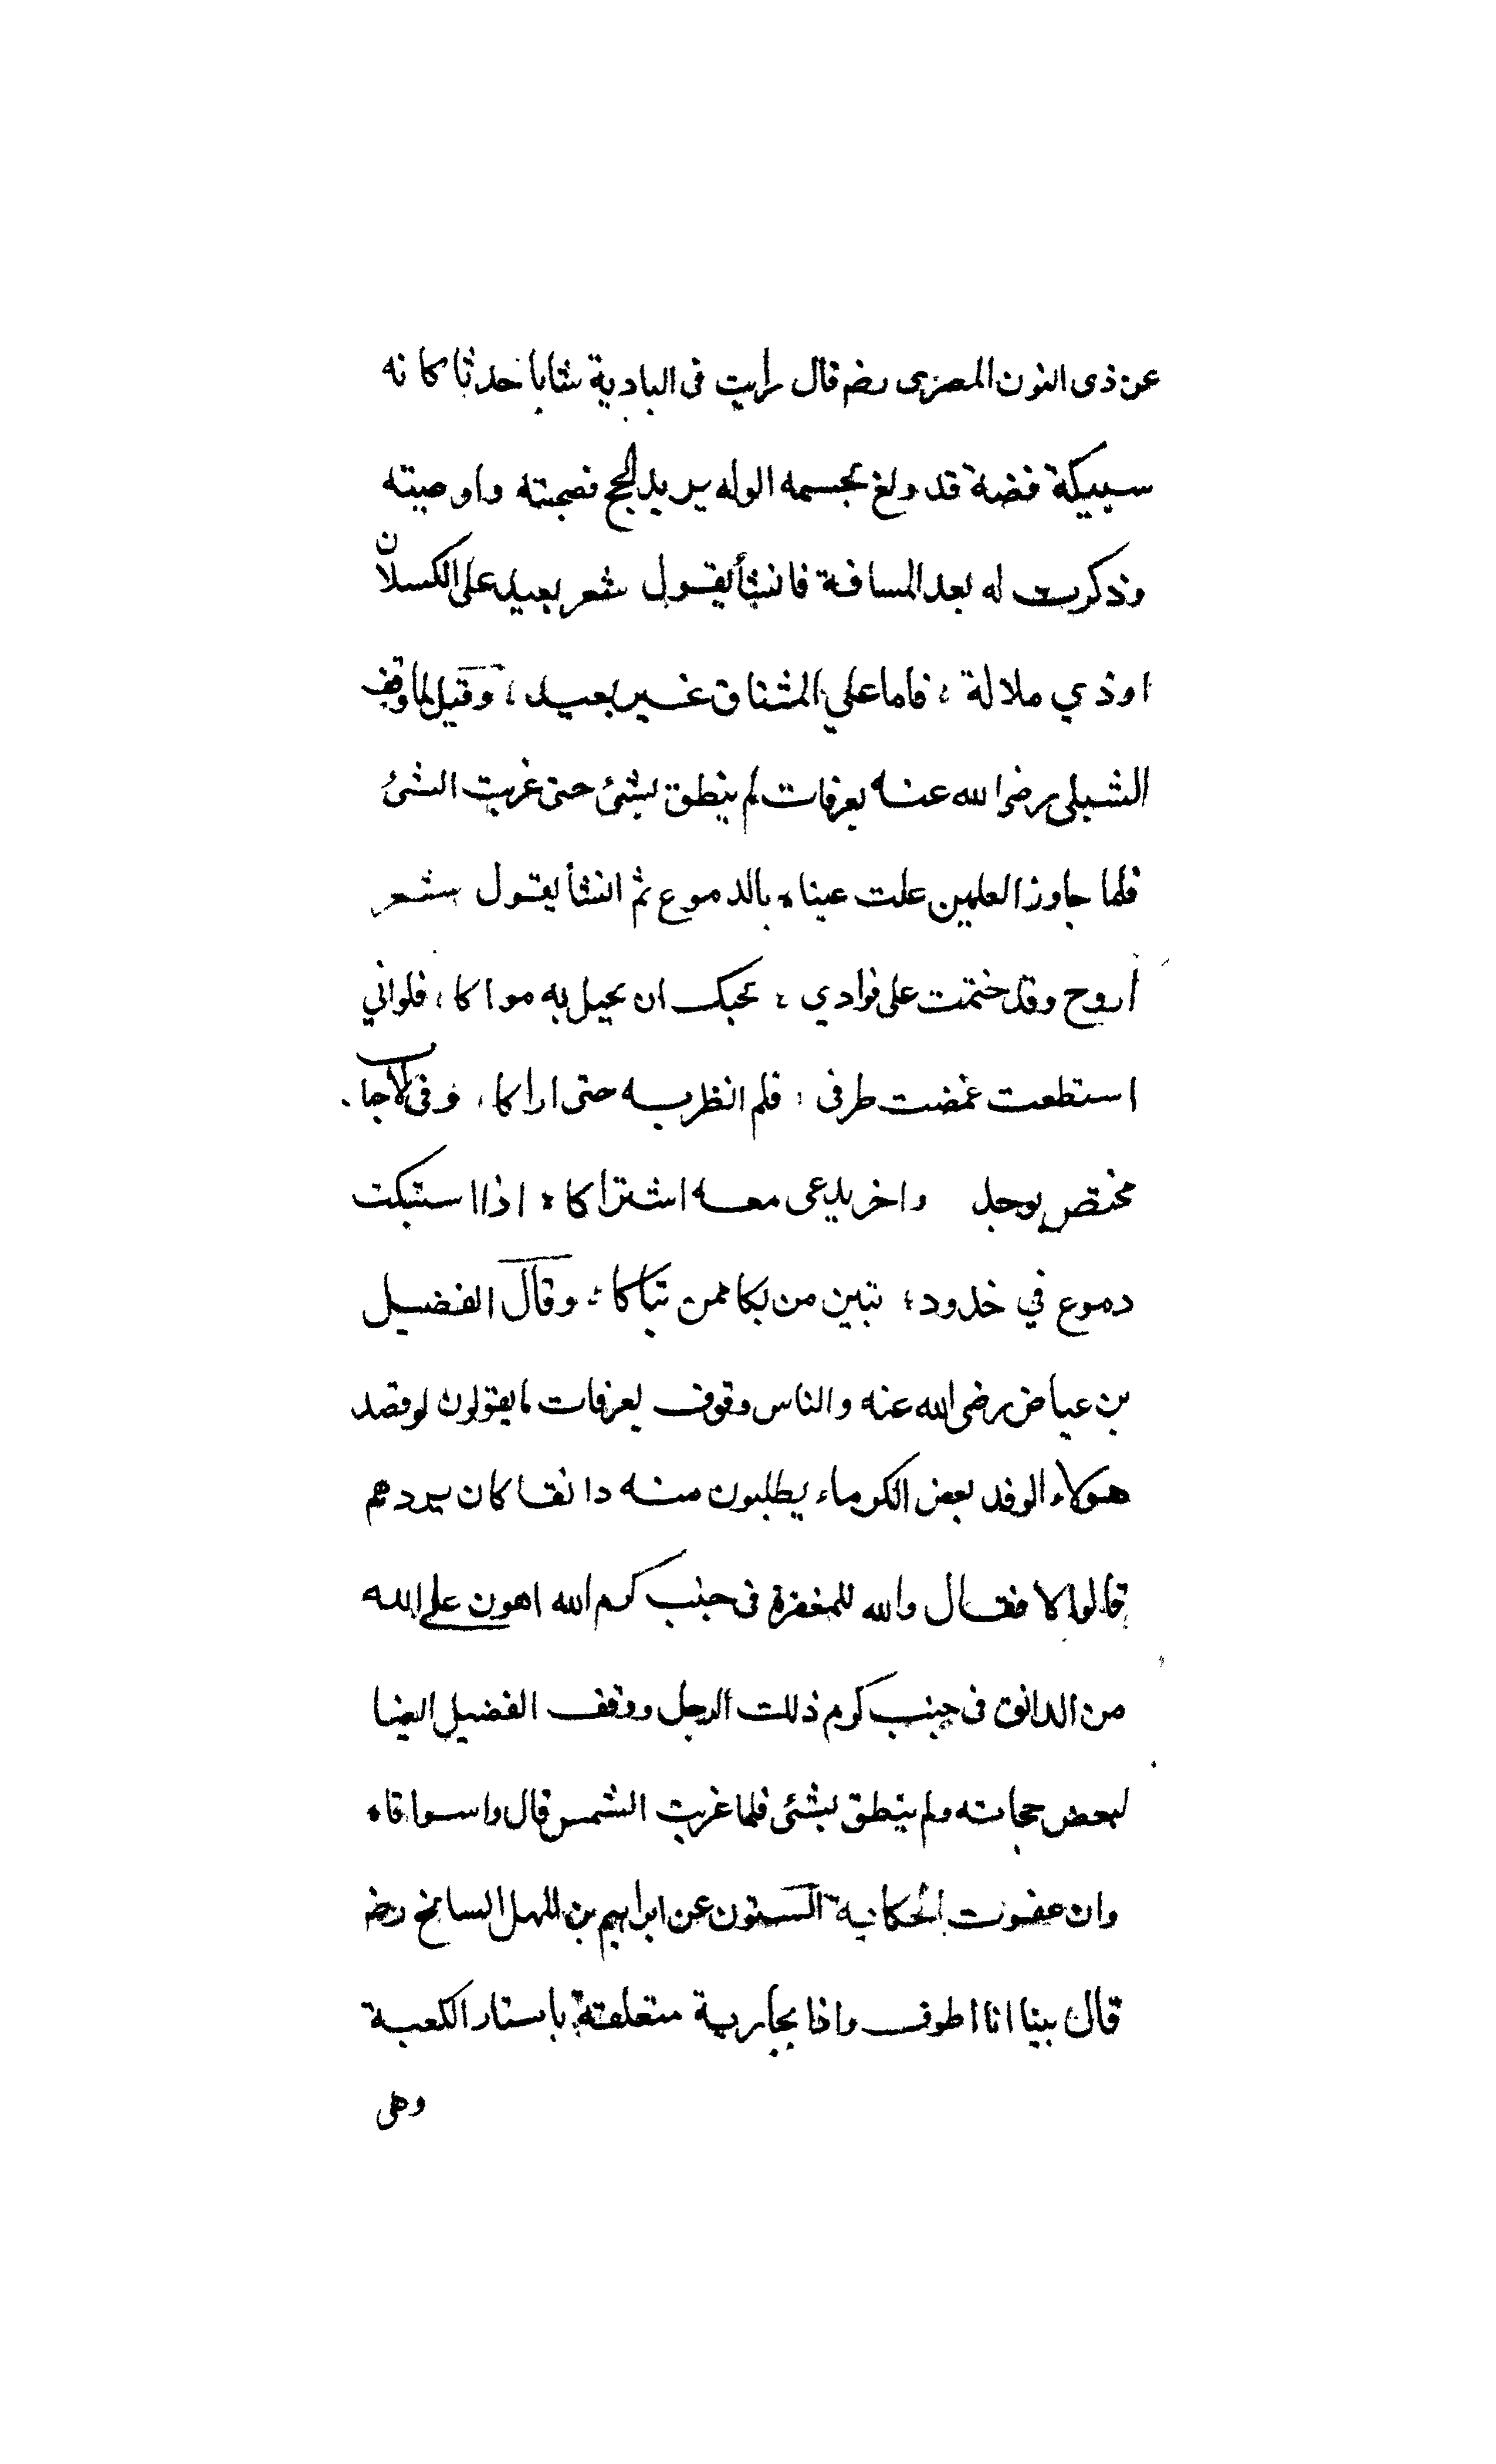 عن ذى النون المصرى رضه قال رايت فى البادية شابا حدثا كانه
سبيكة فضة قد ولغ بجسمه الوله يريد الحج فصحبته واوصيته
وذكرت له بعد المسافة فانشأ يقول شعر بعيد على الكسلان
اوذي ملالة ، فاما علي المشتاق غير بعيد ، وقيل لما وقف
الشبلى رضى الله عنه بعرفات لم ينطق بشئ حتى غربت الشئ
فلما جاوز العلمين علت عيناه بالدموع ثم انشأ يقول شعر
أروح وقد ختمت على فوادي ، بحبك ان يحيل به سواكا ، فلواني
استطعت غمضت طرفى ، فلم انظر به حتى اراكا ، وفى الاحباب
مختص بوجد واخر يدعى معه اشتراكا ، اذا استبكت
دموع في خدود ، تبين من بكا ممن تباكا ، وقال الفضيل
بن عياض رضى الله عنه والناس وقوف بعرفات ما يقولون لو قصد
هؤلاء الوفد بعض الكرماء يطلبون منه دانقا كان يردهم
قالوا لا فقال والله للمغفرة فى جنب كرم الله اهون على الله
من الدانق فى جنب كرم ذلك الرجل ووقف الفضيل ايضا
لبعض حجاته ولم ينطق بشئى فلما غربت الشمس قال واسواتاه
وان عفوت الحكاية الستون عن ابراهيم بن المهلهل السايح رضه
قال بينا انا اطوف واذا بجارية متعلقة باستار الكعبة
وهى